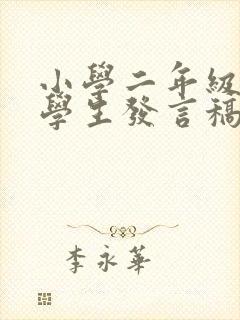 小學二年級
學生發言稿
李永華